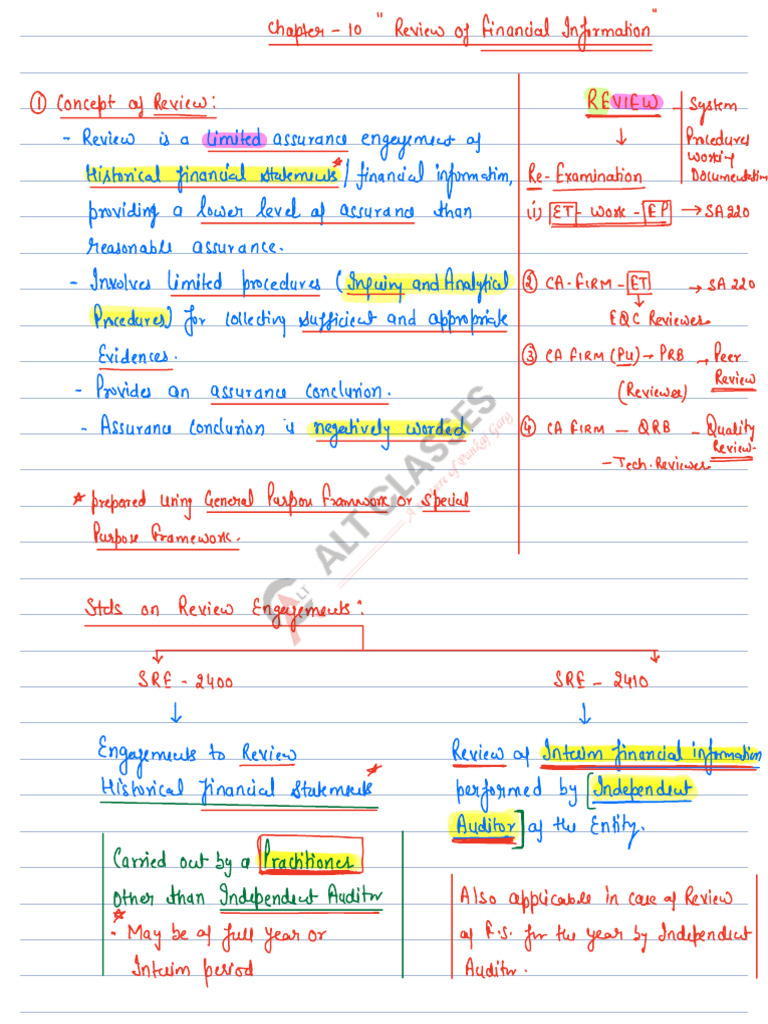 Chapter - 10 " Review of Financial Information"
① Concept of Review:
- Review is a limited assurance engagement of
Historical financial statements* / financial information,
providing a lower level of assurance than
reasonable assurance.
- Involves limited procedures (Inquiry and Analytical
Procedures) for collecting sufficient and appropriate
Evidences.
- Provides an assurance conclusion.
- Assurance conclusion is negatively worded.
* prepared using General Purpose Framework or Special
Purpose Framework.
REVIEW - System
Procedures
Working
Documentation
↓
Re-Examination
(i) ET - Work - EP → SA 220
② CA-FIRM - ET → SA 220
↓
EQC Reviewer
③ CA FIRM (PU) → PRB → Peer
Review
(Reviewer)
④ CA FIRM - QRB - Quality
Review
- Tech. Reviewer
ALT CLASSES
A venture of Pankaj Garg
ALT
Stds on Review Engagements:
SRE - 2400
↓
Engagements to Review
Historical Financial Statements*
Carried out by a Practitioner
other than Independent Auditor
*
- May be of full year or
Interim period
SRE - 2410
↓
Review of Interim financial information
performed by [Independent
Auditor] of the Entity.
Also applicable in case of Review
of F.S. for the year by Independent
Auditor.